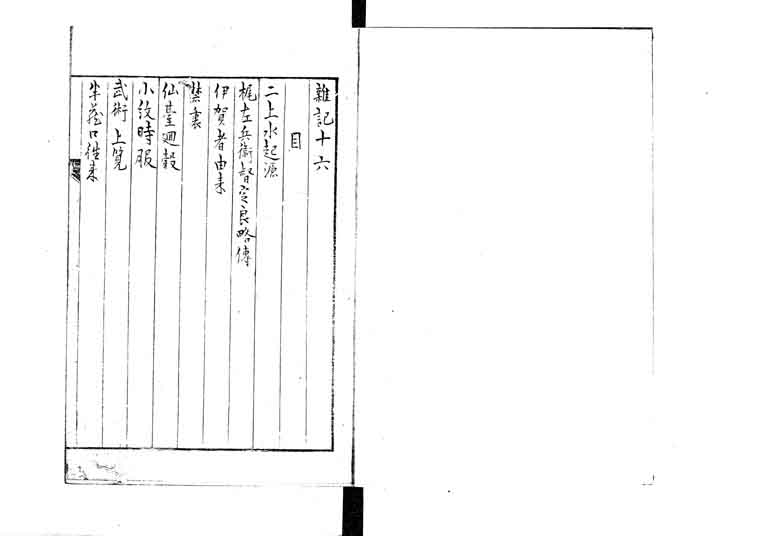 雜記十六
目
二上水起源
梶左兵衛督定良略傳
伊賀者由来
禁裏
仙臺廻穀
小紋時服
武術上覧
半蔵口往来